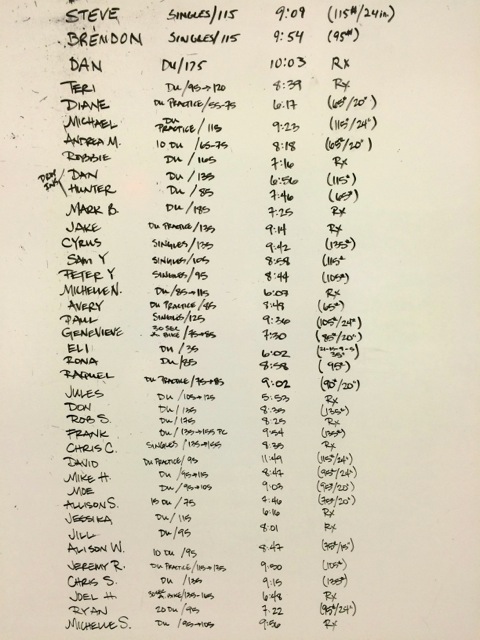 STEVE SINGLES/115 9:09 (115#/24in.)
BRENDON SINGLES/115 9:54 (95#)
DAN DU/175 10:03 RX
TERI DU/95→120 8:39 RX
DIANE DU PRACTICE/55-75 6:17 (65#/20")
MICHAEL DU PRACTICE/115 9:23 (115#/24")
ANDREA M. 10 DU/65-75 8:18 (65#/20")
ROBBIE DU/165 7:16 RX
DROP IN DAN DU/135 6:56 (115#)
HUNTER DU/85 7:46 (65#)
MARK B. DU/185 7:25 RX
JAKE DU PRACTICE/135 9:14 RX
CYRUS SINGLES/135 9:42 (135#)
SAM Y SINGLES/105 8:58 (115#
PETER Y SINGLES/95 8:44 (105#)
MICHELLE N. DU/85→115 6:07 RX
AVERY DU PRACTICE/85 8:48 (65#)
PAUL SINGLES/125 9:36 (105#/24")
GENEVIEVE 30 SEC A. BIKE/75→85 7:30 (85#/20")
ELI DU/35 6:02 35#)
RONA DU/85 8:58 (95#)
RAQUEL DU PRACTICE/75→85 9:02 (90#/20")
JULES DU/105→125 5:53 RX
DON DU/135 8:35 (135#)
ROB S. DU/175 8:25 RX
FRANK DU/135→155 PC 9:54 (135#)
CHRIS C. SINGLES/135→155 8:35 RX
DAVID DU PRACTICE/95 11:49 (115#/24")
MIKE H. DU/95→115 8:47 (95#/24")
MOE DU/95→105 9:03 (95#/20")
ALLISON S. 15 DU/75 7:46 (75#/20")
JESSIKA DU/115 6:16 RX
JILL DU/95 8:01 RX
ALISON W. 10 DU/95 8:47 (75#/15")
JEREMY R. DU PRACTICE/115→175 9:50 (105#)
CHRIS S. DU/135 9:15 (135#)
JOEL H. 30 SEC A. BIKE/135-165 6:48 RX
RYAN 20 DU/95 7:22 (95#/24")
MICHELLE S. DU/95→105 9:56 RX